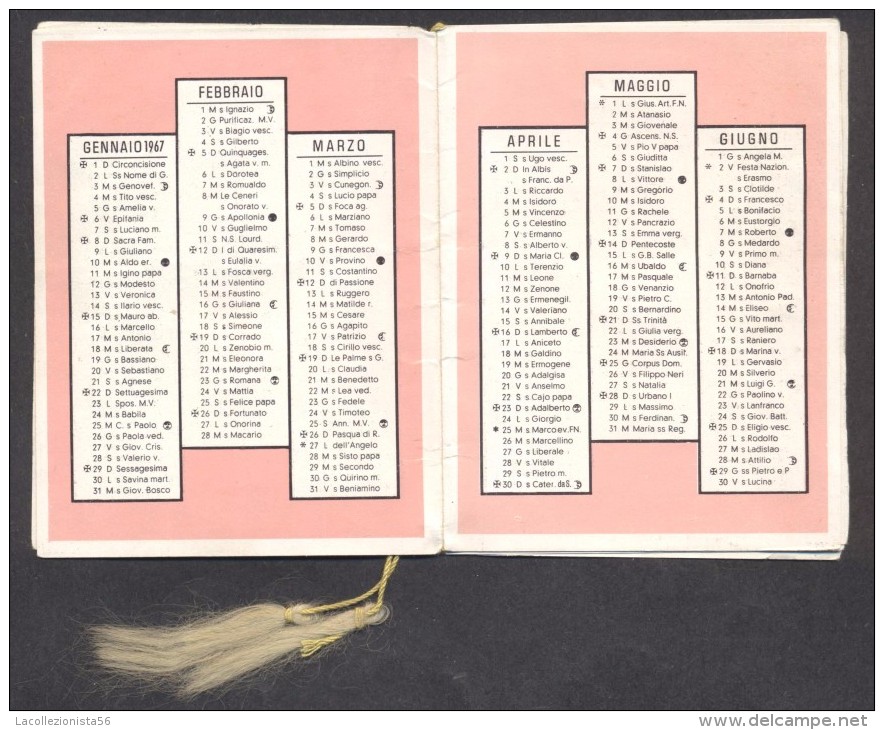 GENNAIO 1967
✠ 1 D Circoncisione
2 L Ss Nome di G.
3 M s Genovef.
4 M s Tito vesc.
5 G s Amelia v.
✠ 6 V Epifania
7 S s Luciano m.
✠ 8 D Sacra Fam.
9 L s Giuliano
10 M s Aldo er.
11 M s Igino papa
12 G s Modesto
13 V s Veronica
14 S s Ilario vesc.
✠ 15 D s Mauro ab.
16 L s Marcello
17 M s Antonio
18 M s Liberata
19 G s Bassiano
20 V s Sebastiano
21 S s Agnese
✠ 22 D Settuagesima
23 L Spos. M.V.
24 M s Babila
25 M C. s Paolo
26 G s Paola ved.
27 V s Giov. Cris.
28 S s Valerio v.
✠ 29 D Sessagesima
30 L s Savina mart.
31 M s Giov. Bosco
FEBBRAIO
1 M s Ignazio
2 G Purificaz. M.V.
3 V s Biagio vesc.
4 S s Gilberto
✠ 5 D Quinquages.
s Agata v. m.
6 L s Dorotea
7 M s Romualdo
8 M Le Ceneri
s Onorato v.
9 G s Apollonia
10 V s Guglielmo
11 S N.S. Lourd.
✠ 12 D I di Quaresim.
s Eulalia v.
13 L s Fosca verg.
14 M s Valentino
15 M s Faustino
16 G s Giuliana
17 V s Alessio
18 S s Simeone
✠ 19 D s Corrado
20 L s Zenobio m.
21 M s Eleonora
22 M s Margherita
23 G s Romana
24 V s Mattia
25 S s Felice papa
✠ 26 D s Fortunato
27 L s Onorina
28 M s Macario
MARZO
1 M s Albino vesc.
2 G s Simplicio
3 V s Cunegon.
4 S s Lucio papa
✠ 5 D s Foca ag.
6 L s Marziano
7 M s Tomaso
8 M s Gerardo
9 G s Francesca
10 V s Provino
11 S s Costantino
✠ 12 D di Passione
13 L s Ruggero
14 M s Matilde r.
15 M s Cesare
16 G s Agapito
17 V s Patrizio
18 S s Cirillo vesc.
✠ 19 D Le Palme s G.
20 L s Claudia
21 M s Benedetto
22 M s Lea ved.
23 G s Fedele
24 V s Timoteo
25 S Ann. M.V.
✠ 26 D Pasqua di R.
* 27 L dell'Angelo
28 M s Sisto papa
29 M s Secondo
30 G s Quirino m.
31 V s Beniamino
APRILE
1 S s Ugo vesc.
✠ 2 D In Albis
s Franc. da P.
3 L s Riccardo
4 M s Isidoro
5 M s Vincenzo
6 G s Celestino
7 V s Ermanno
8 S s Alberto v.
✠ 9 D s Maria Cl.
10 L s Terenzio
11 M s Leone
12 M s Zenone
13 G s Ermenegil.
14 V s Valeriano
15 S s Annibale
✠ 16 D s Lamberto
17 L s Aniceto
18 M s Galdino
19 M s Ermogene
20 G s Adalgisa
21 V s Anselmo
22 S s Cajo papa
✠ 23 D s Adalberto
24 L s Giorgio
* 25 M s Marco ev. F.N.
26 M s Marcellino
27 G s Liberale
28 V s Vitale
29 S s Pietro m.
✠ 30 D s Cater. da S.
MAGGIO
* 1 L s Gius. Art. F.N.
2 M s Atanasio
3 M s Giovenale
✠ 4 G Ascens. N.S.
5 V s Pio V papa
6 S s Giuditta
✠ 7 D s Stanislao
8 L s Vittore
9 M s Gregorio
10 M s Isidoro
11 G s Rachele
12 V s Pancrazio
13 S s Emma verg.
✠ 14 D Pentecoste
15 L s G.B. Salle
16 M s Ubaldo
17 M s Pasquale
18 G s Venanzio
19 V s Pietro C.
20 S s Bernardino
✠ 21 D Ss Trinità
22 L s Giulia verg.
23 M s Desiderio
24 M Maria Ss Ausil.
✠ 25 G Corpus Dom.
26 V s Filippo Neri
27 S s Natalia
✠ 28 D s Urbano I
29 L s Massimo
30 M s Ferdinan.
31 M Maria ss Reg.
GIUGNO
1 G s Angela M.
* 2 V Festa Nazion.
s Erasmo
3 S s Clotilde
✠ 4 D s Francesco
5 L s Bonifacio
6 M s Eustorgio
7 M s Roberto
8 G s Medardo
9 V s Primo m.
10 S s Diana
✠ 11 D s Barnaba
12 L s Onofrio
13 M s Antonio Pad.
14 M s Eliseo
15 G s Vito mart.
16 V s Aureliano
17 S s Raniero
✠ 18 D s Marina v.
19 L s Gervasio
20 M s Silverio
21 M s Luigi G.
22 G s Paolino v.
23 V s Lanfranco
24 S s Giov. Batt.
✠ 25 D s Eligio vesc.
26 L s Rodolfo
27 M s Ladislao
28 M s Attilio
✠ 29 G ss Pietro e P
30 V s Lucina
Lacollezionista56
delcampe.net